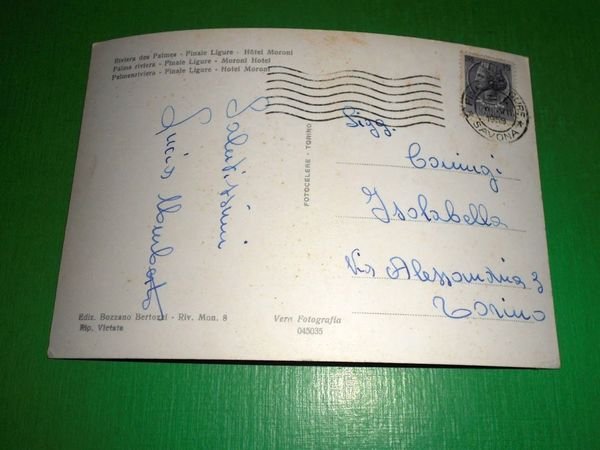 Riviera des Palmes - Finale Ligure - Hôtel Moroni
Palms riviera - Finale Ligure - Moroni Hotel
Palmenriviera - Finale Ligure - Hotel Moroni
Salutissimi
Lucia Umberto
FOTOCELERE - TORINO
SAVONA
Sigg.
Coniugi
Isolabella
Via Alessandria 3
Torino
Ediz. Bozzano Bertozzi - Riv. Mon. 8
Rip. Vietata
Vera Fotografia
045035